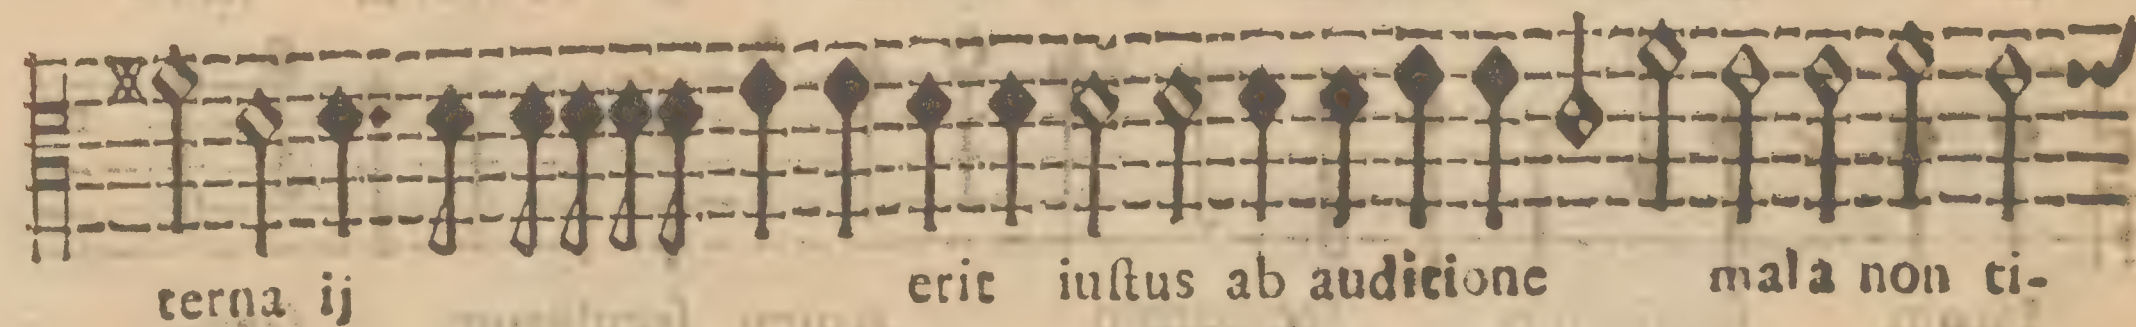 terna ij erit iuſtus ab auditione mala non ti-